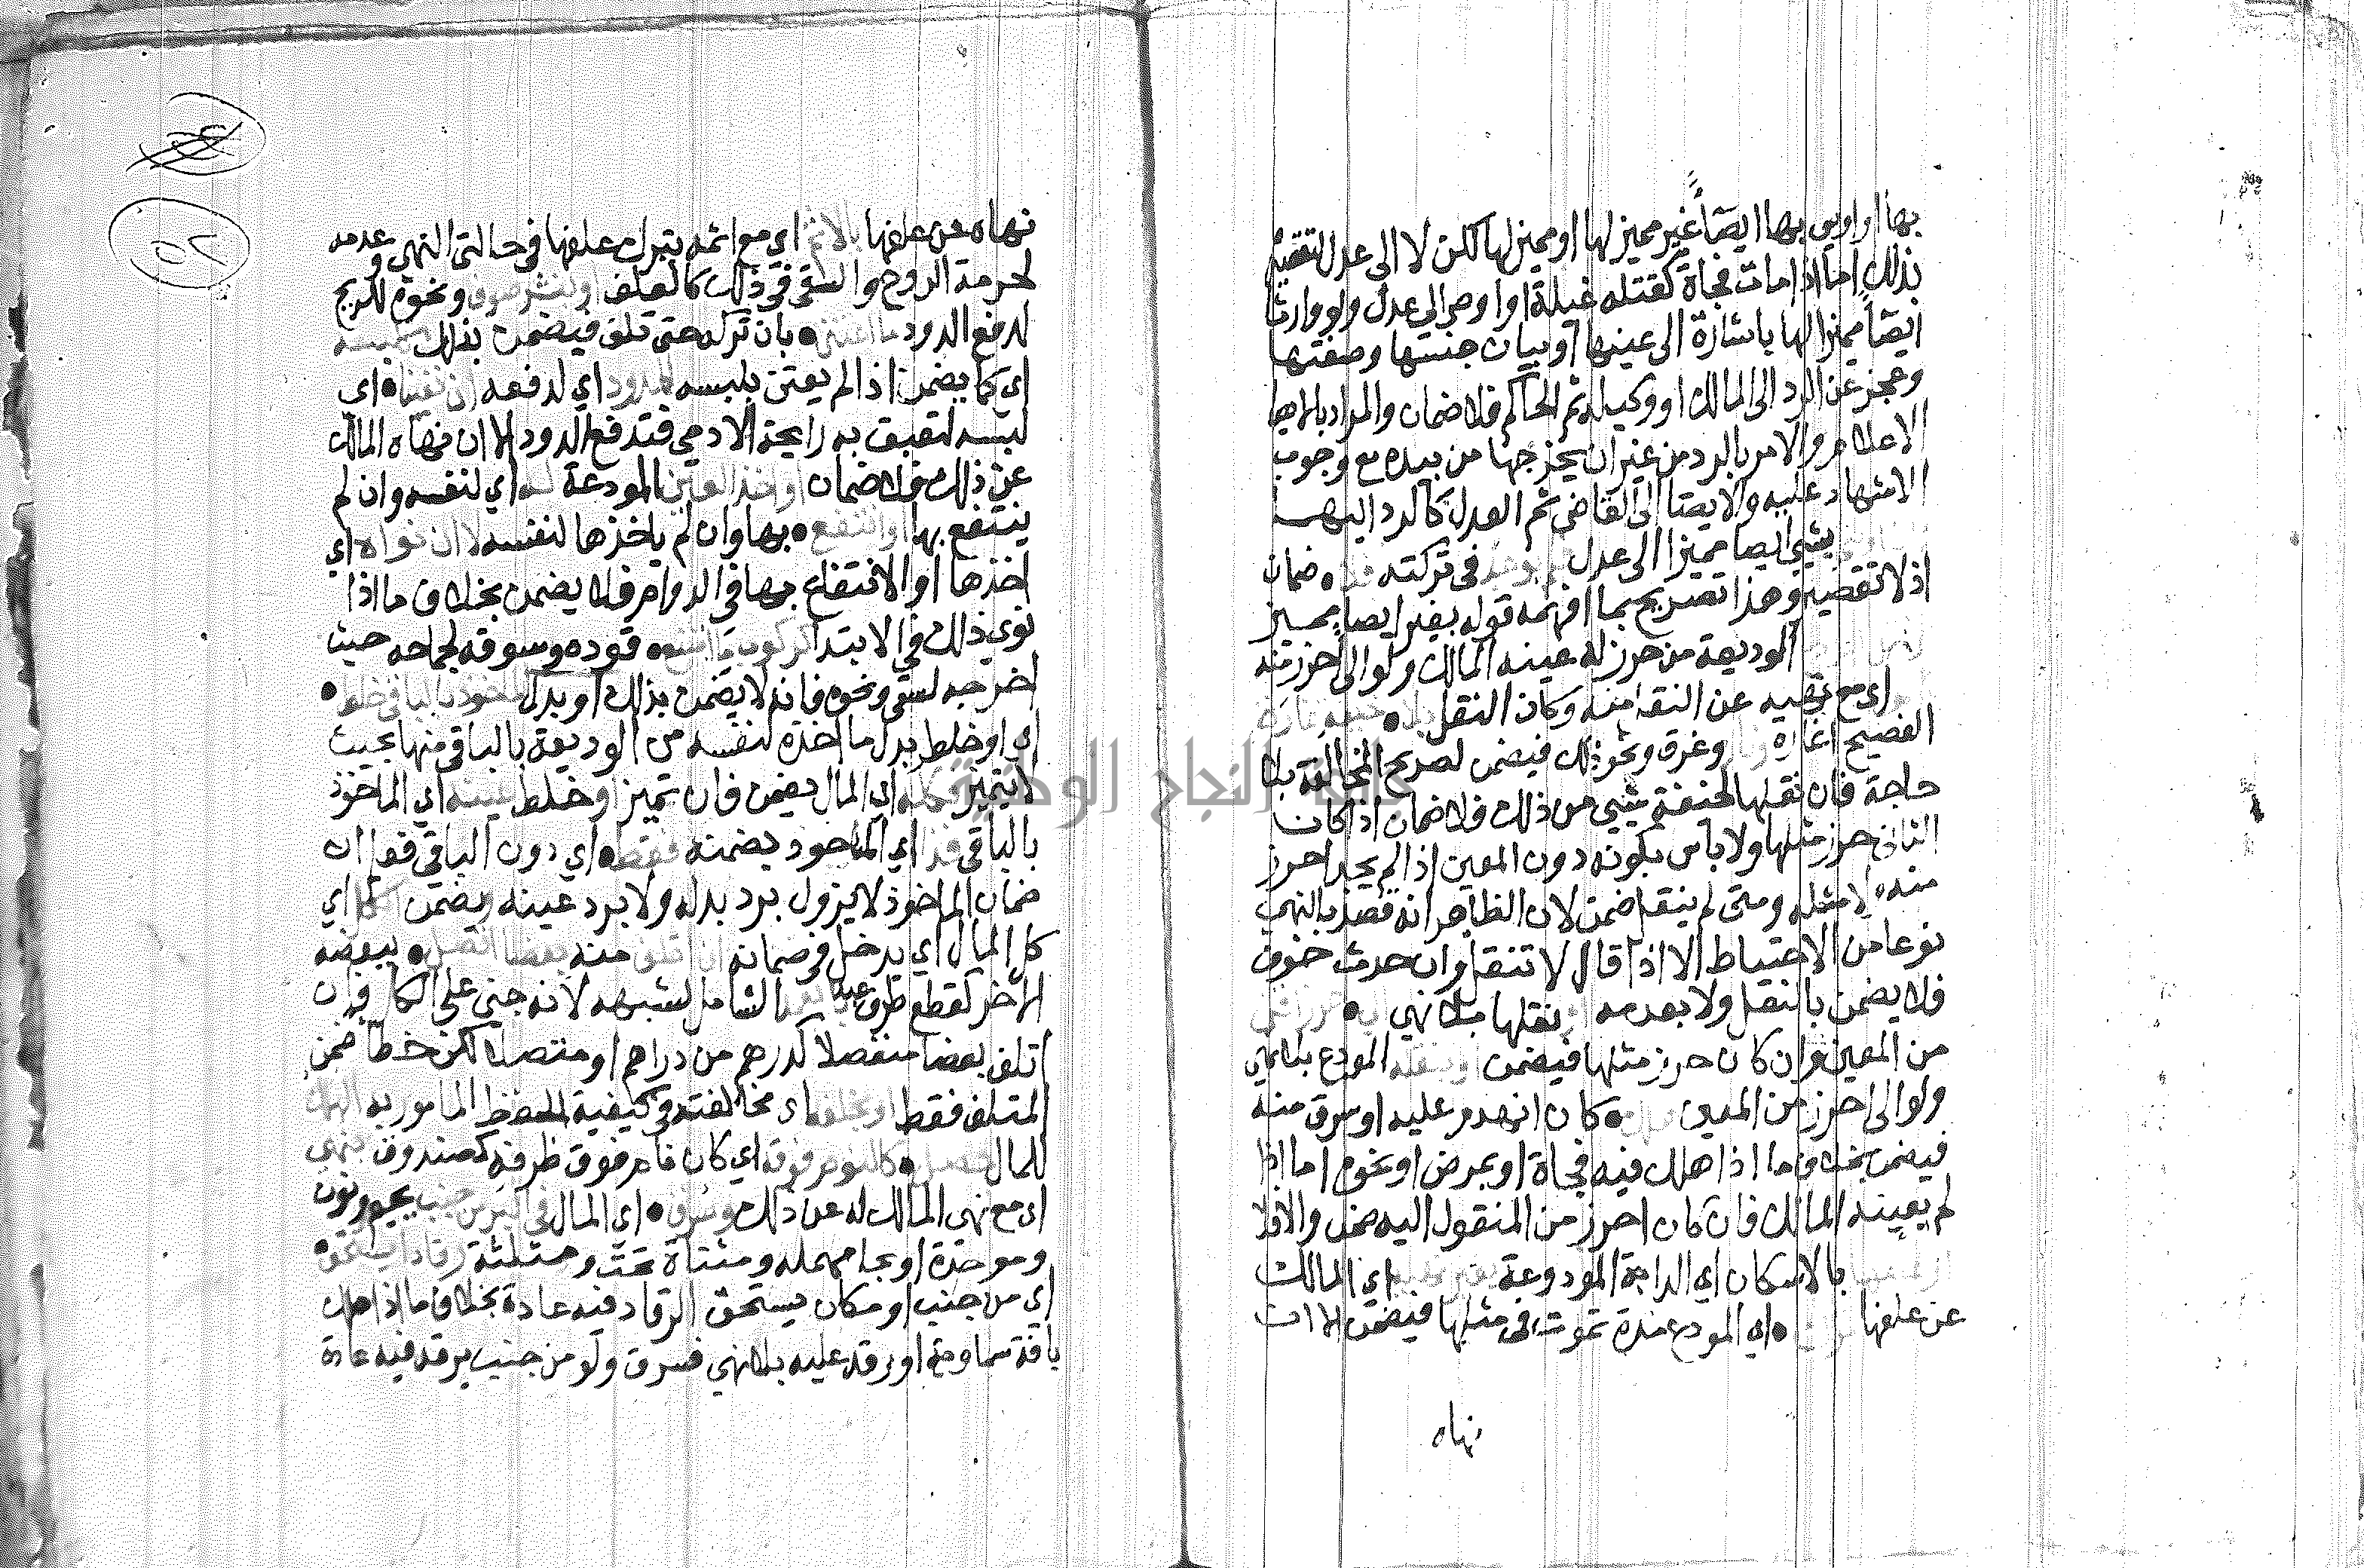 بها او اوصى بها ايصاً غير مميز لها او مميز لها لكن لا الى عدل لتقصيره
بذلك اما اذا مات فجاة كقتله غيلة او اوصى الى عدل ولو وارثا
ايصاً مميزا لها باشارة الى عينها او بيان جنسها وصفتها
وعجز عن الرد الى المالك او وكيله ثم الحاكم فلا ضمان والمراد بالايصا
الاعلام والامر بالرد من غير ان يخرجها من يده مع وجوب
الاشهاد عليه والايصا الى القاضي ثم العدل كالرد اليهما
بشي ايصا مميزا الى عدل في تركته ضمان
اذ لا تقصير وهذا تصريح بما افهمه قوله بغير ايصا مميز
الوديعة من حرز له عينه المالك ولو الى احرز منه
اى مع نهيه عن النقل منه وكان النقل
الفصيح اغارة وغرق ونحو ذلك فيضمن لصريح المخالفة بلا
حاجة فان نقلها لخيفة شيي من ذلك فلا ضمان اذا كان
الثاني حرز مثلها ولا باس بكونه دون المعين اذا لم يجد احرز
منه ولا مثله ومتى لم ينقل ضمن لان الظاهر انه قصد بالنهي
نوعا من الاحتياط الا اذا قال لا تنقل وان حدث خوف
فلا يضمن بالنقل ولا بعدمه نقلها بلا نهي
من المعين وان كان حرز مثلها فيضمن او بنقله المودع بلا نهي
ولو الى احرز من المعين كان انهدم عليه او سرق منه
فيضمن بخلاف ما اذا هلك فيه فجاة او بمرض او نحوه اما اذا
لم يعينه المالك فان كان احرز من المنقول اليه ضمن والا فلا
بالاسكان اي الدابة المودوعة اي المالك
عن علفها اي المودع مدة تموت في مثلها فيضمن الا ان
نهاه
٥٢
نهاه عن علفها بالاثم اي مع اثمه بترك علفها في حالتي النهي وعدمه
لحرمة الروح والسقي في ذلك كالعلف او لنشر صوف ونحوه للريح
لدفع الدود ما اعتنى بان تركه حتى تلف فيضمن بذلك كلبسه
اي كما يضمن اذا لم يعتن بلبسه للدود اي لدفعه ان تعينا اي
لبسه لتعبق به رايحة الادمي فتدفع الدود الا ان نهاه المالك
عن ذلك فلا ضمان او اخذ العين المودعة له اي لنفسه وان لم
ينتفع بها او انتفع بها وان لم ياخذها لنفسه لا ان نواه اي
اخذها او الانتفاع بها في الدوام فلا يضمن بخلاف ما اذا
نوي ذلك في الابتدا كركوب ما امتنع قوده وسوقه لجماحه حيث
اخرجه لسقي ونحوه فانه لا يضمن بذلك او بدل ماخوذ بالباقي خلط
اي او خلط بدل ما اخذه لنفسه من الوديعة بالباقي منها بحيث
لا يتميز فكله اي المال يضمن فان تميز او خلط عينه اي الماخوذ
بالباقي فذا اي الماخوذ يضمنه فقط اي دون الباقي فقا ان
ضمان الماخوذ لا يزول برد بدله ولا برد عينه ويضمن الكل اي
كل المال اي يدخل في ضمانه ان اتلف منه بعضا اتصل ببعضه
الاخر كقطع طرف عبد الشامل لشبهه لانه جنى على الكل فان
اتلف بعضا منفصلا كدرهم من دراهم او متصلا لكن خطا ضمن
المتلف فقط او بخلفه اى مخالفته في كيفية الحفظ المامور به
للمال كالنوم فوقه اي كان نام فوق ظرفه كصندوق بنهي
اى مع نهي المالك له عن ذلك وسرق اي المال في البر من جنب بجيم ونون
وموحدة او بحا مهمله ومثناة تحت ومثلثة رقادا يستحق
اي من جنب او مكان يستحق الرقاد فيه عادة بخلاف ما اذا هلك
بافة سماوية او رقد عليه بلا نهي فسرق ولو من جنب يرقد فيه عادة
جامعة النجاح الوطنية